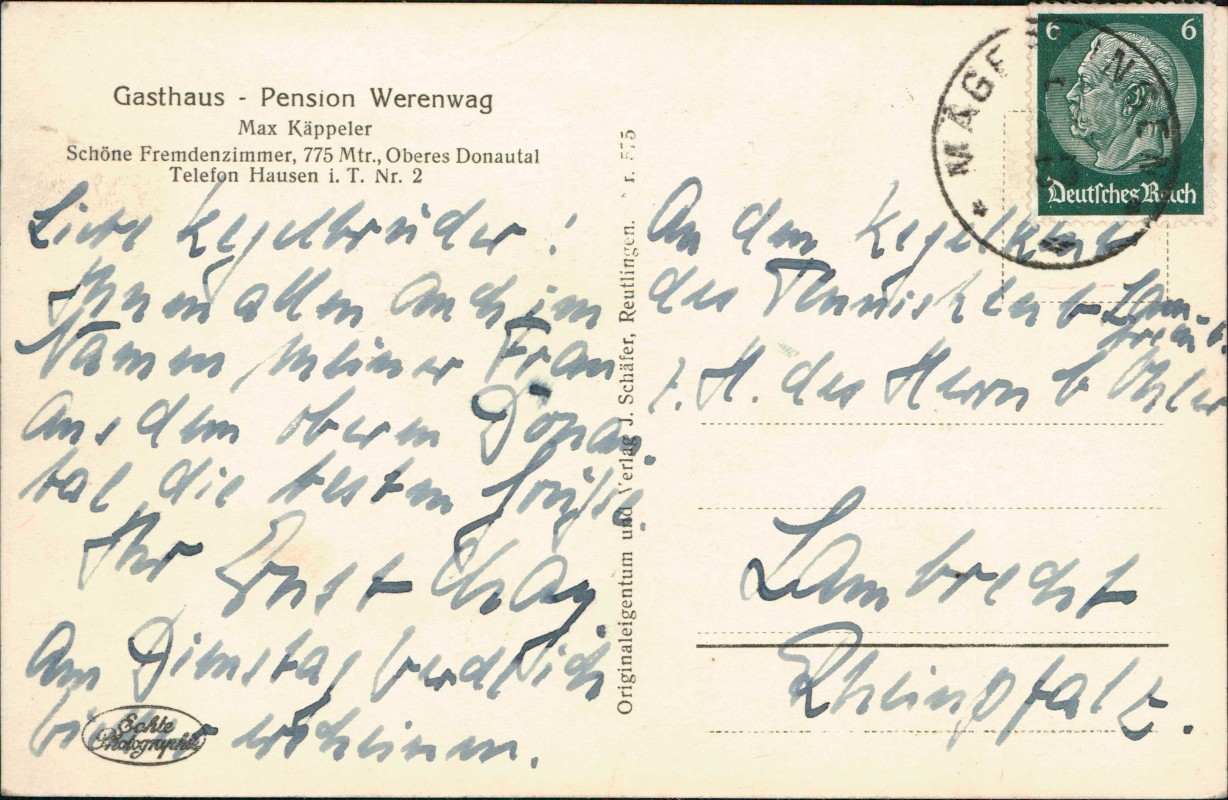 Gasthaus - Pension Werenwag
Max Käppeler
Schöne Fremdenzimmer, 775 Mtr., Oberes Donautal
Telefon Hausen i. T. Nr. 2
Liebe Kegelbrüder!
Ihnen allen auch im
Namen meiner Frau
aus dem oberen Donau-
tal die besten Grüsse.
Ihr Ernst
Am Dienstag werde ich
wieder erscheinen.
Echte
Photographie
Originaleigentum und Verlag J. Schäfer, Reutlingen. Nr. 575
6 6
Deutsches Reich
MÄGERKINGEN
An den Kegelklub
des Tennisklub Lam-
brecht
z. H. des Herrn
Lambrecht
Rheinpfalz.